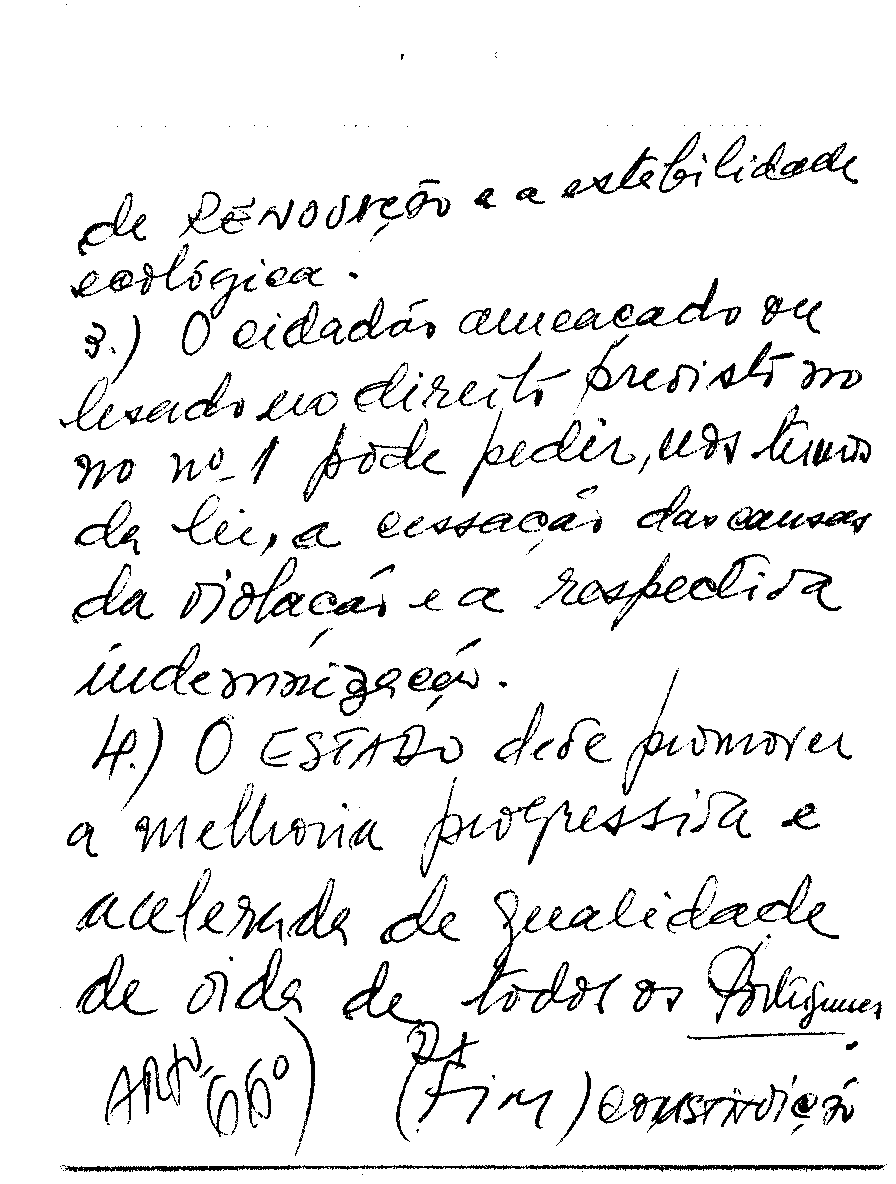 de RENOVAÇÃO e a estabilidade
ecológica.
3.) O cidadão ameaçado ou
lesado no direito previsto no
no nº 1 pode pedir, nos termos
da lei, a cessação das causas
da violação e a respectiva
indemnização.
4.) O ESTADO deve promover
a melhoria progressiva e
acelerada de qualidade
de vida de todos os Portugueses.
ARTº 66º) (Fim) CONSTITUIÇÃO